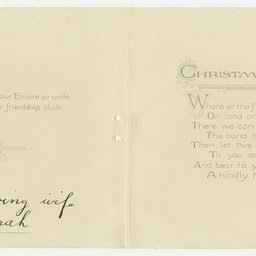 our Empire so wide,
r friendship abide.
ving wife
nah
CHRISTM
Where'er the f
On land or
There we can
The bond o
Then let this
To you ac
And bear to y
A kindly h